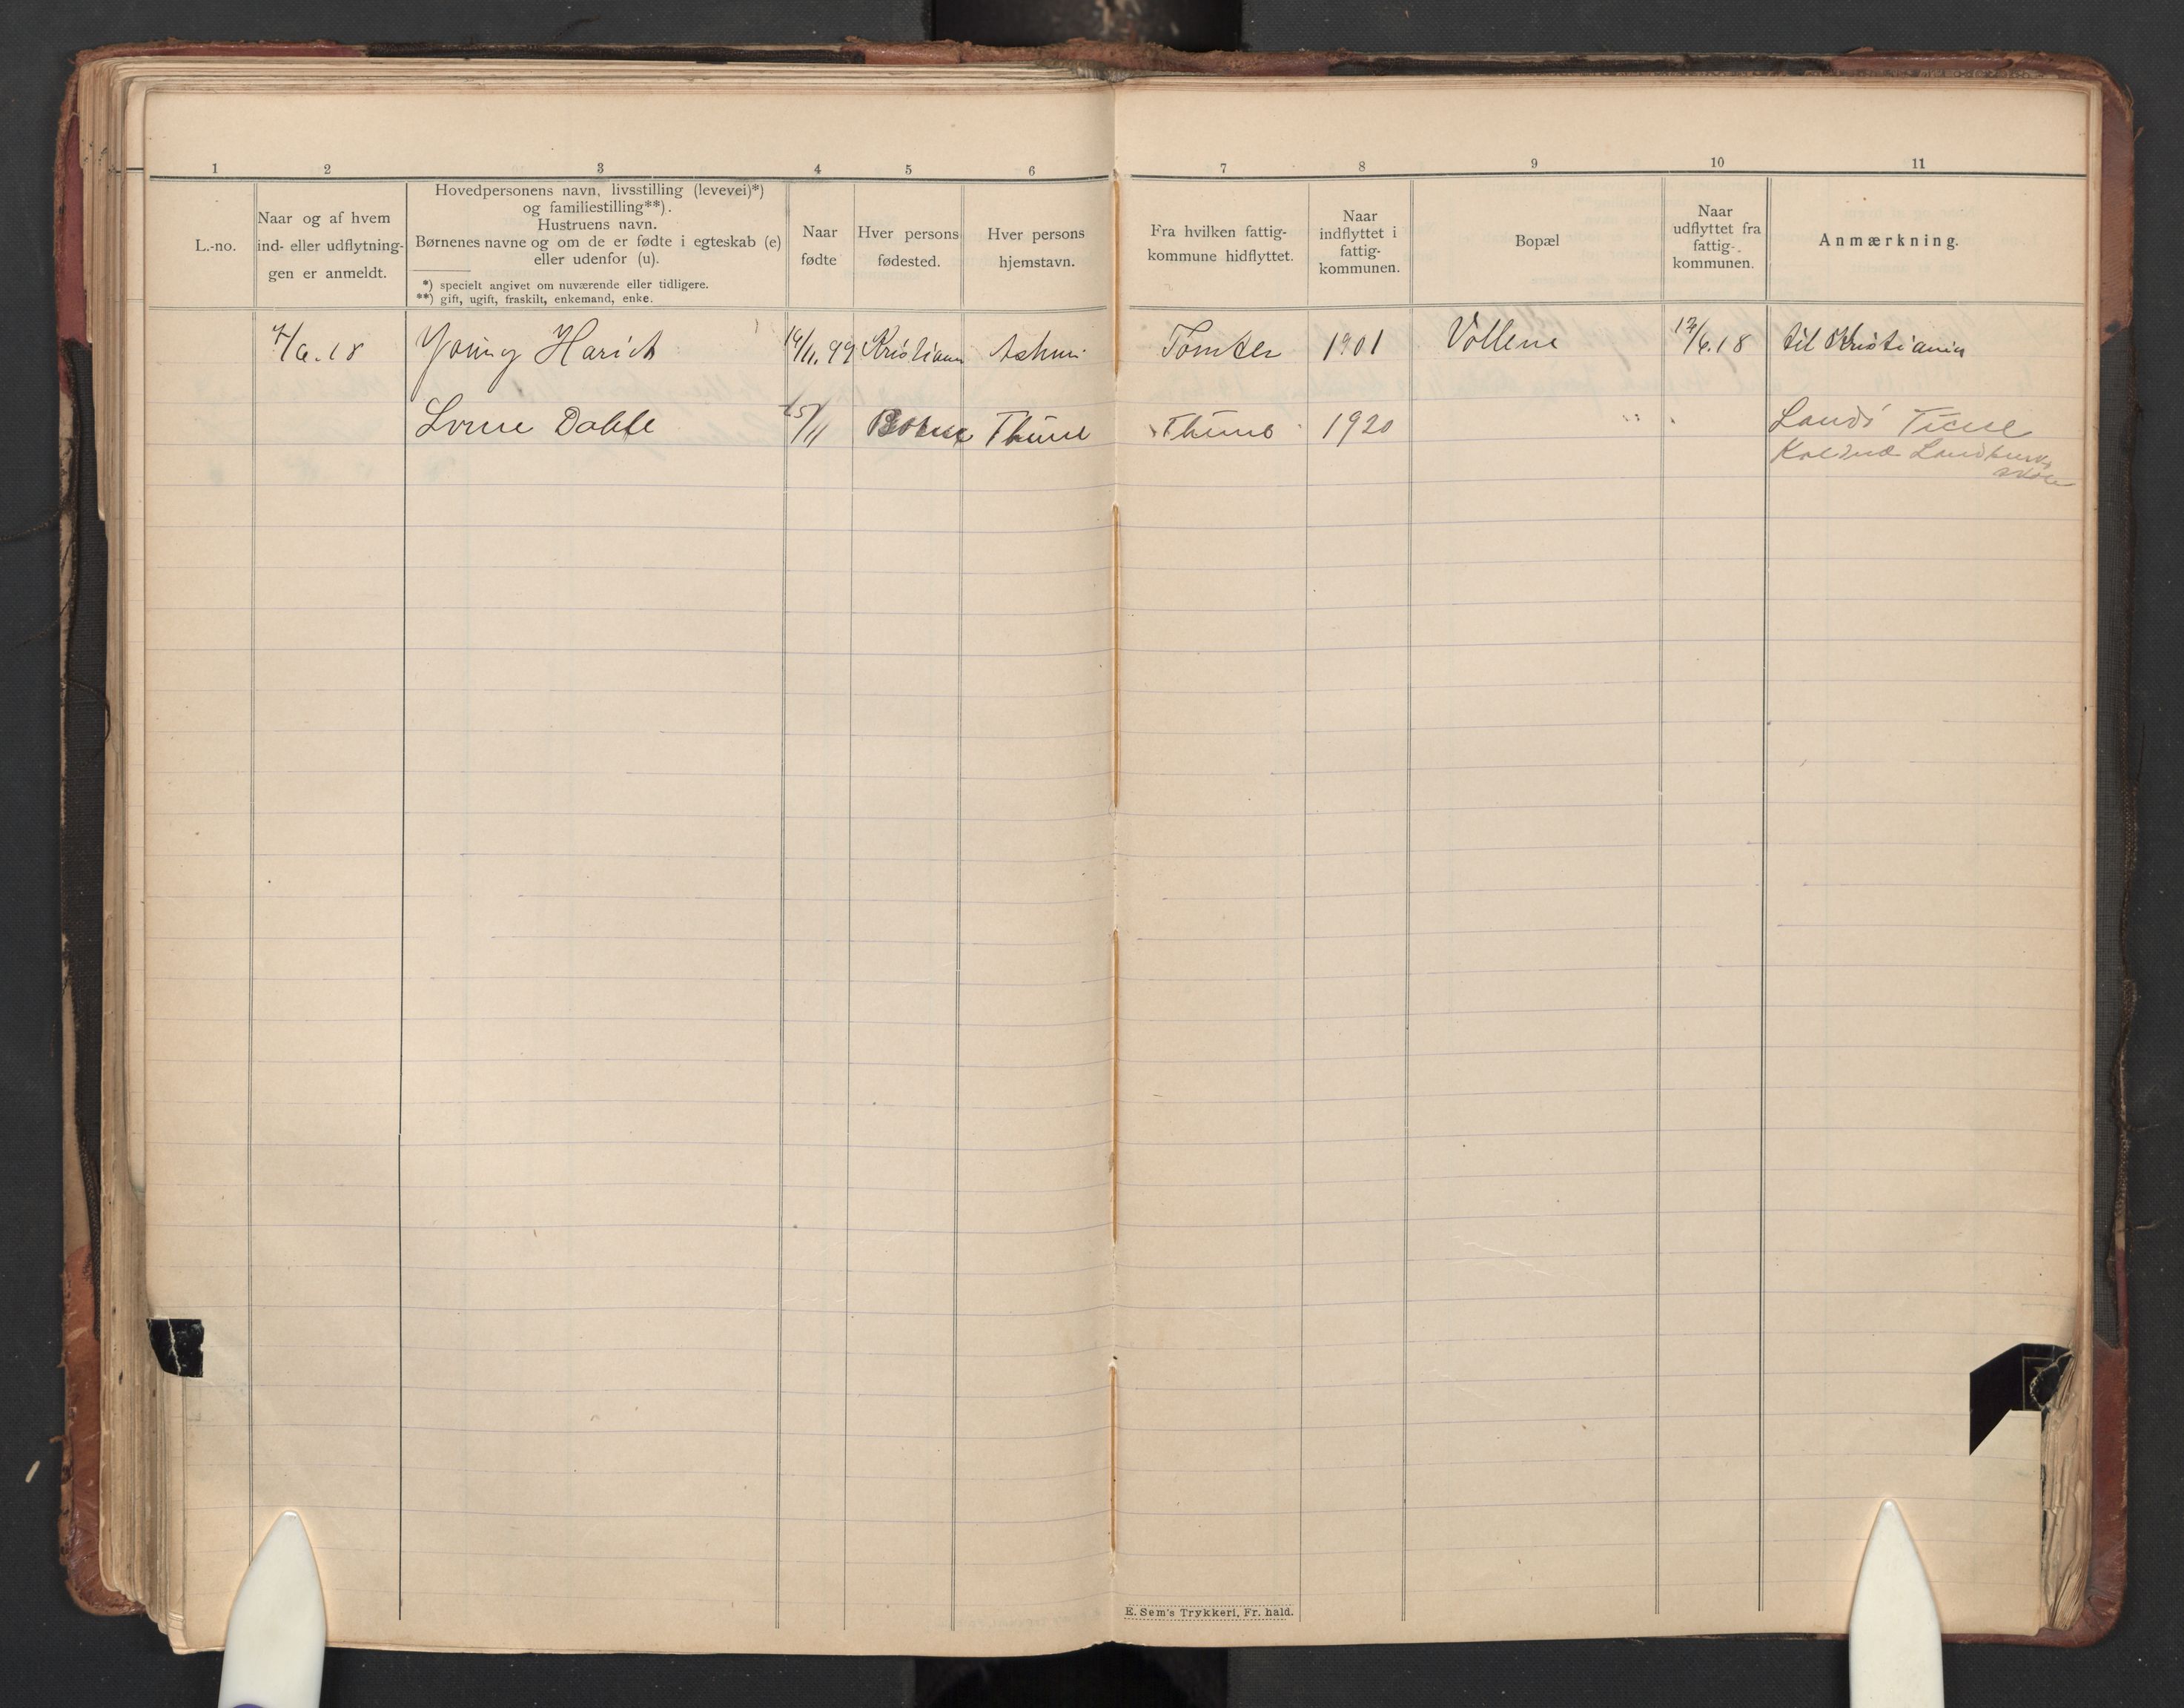 1 2 3 4 5 6 7 8 9 10 11
L.-no.
Naar og af hvem
ind- eller udflytnin-
gen er anmeldt.
Hovedpersonens navn, livsstilling (levevei)*)
og familiestilling**).
Hustruens navn.
Børnenes navne og om de er fødte i egteskab (e)
eller udenfor (u).
*) specielt angivet om nuværende eller tidligere.
**) gift, ugift, fraskilt, enkemand, enke.
Naar
fødte
Hver persons
fødested.
Hver persons
hjemstavn.
Fra hvilken fattig-
kommune hidflyttet.
Naar
indflyttet i
fattig-
kommunen.
Bopæl
Naar
udflyttet fra
fattig-
kommunen.
Anmærkning.
7/6.18 Young Harich 19/11.99 Kristiania Askim Tomter 1901 Vollene 12/6.18 til Kristiania
Dahle 25/11 Thune Thune 1920
E. Sem's Trykkeri, Fr. hald.